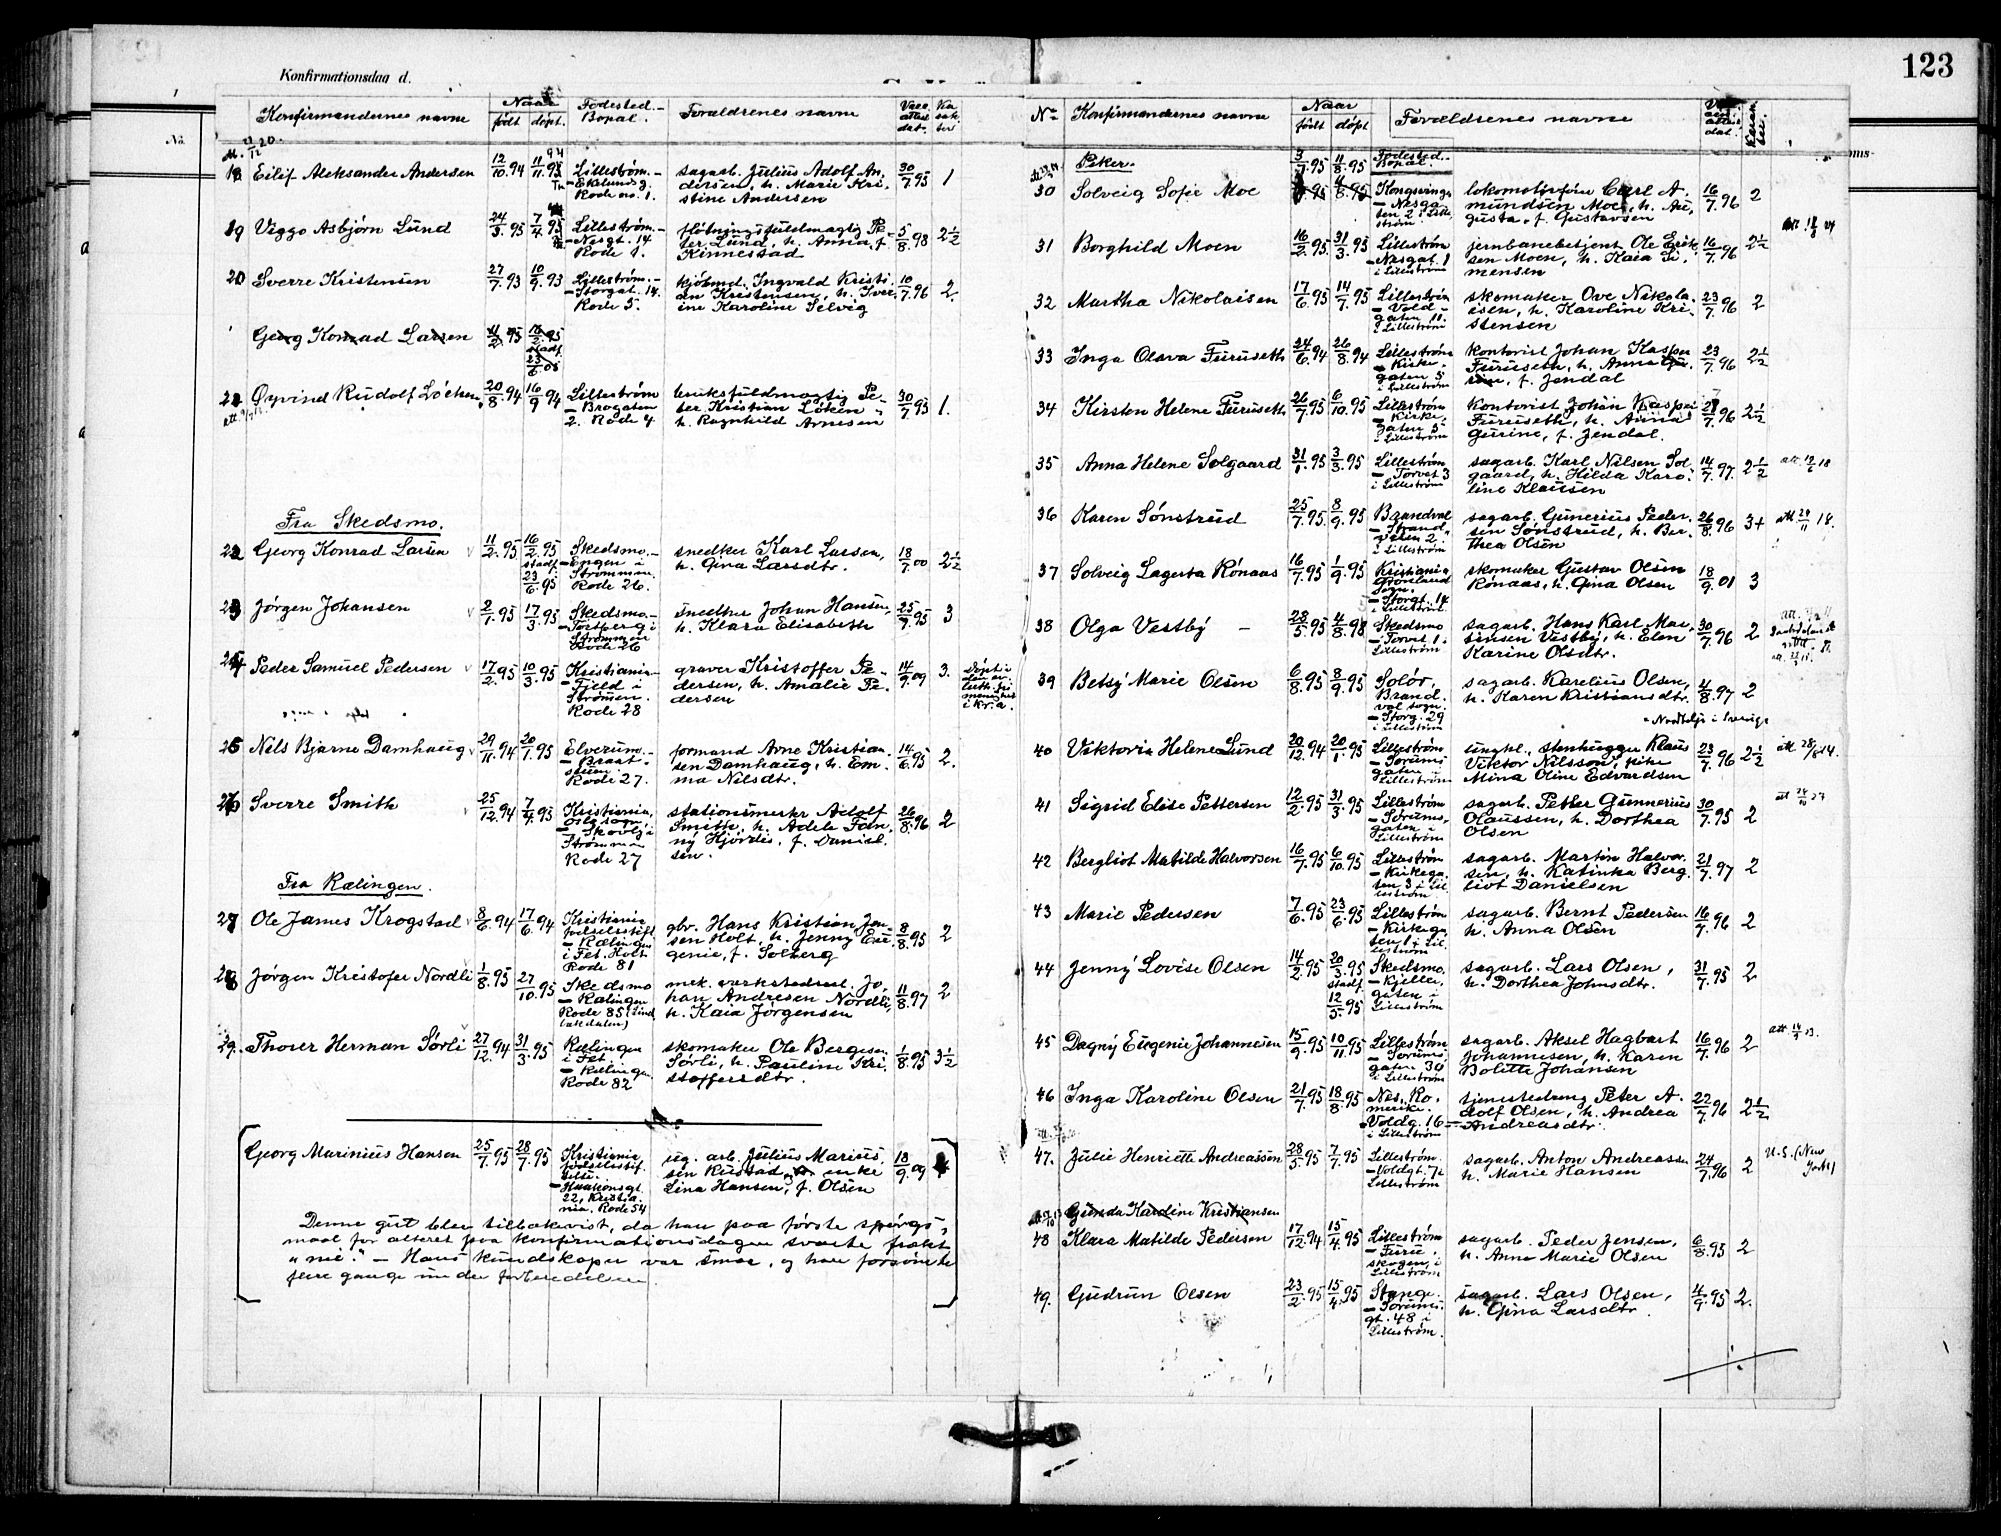 123
Konfirmationsdag d.
No.
Konfirmandernes navne
Naar
født
døpt.
Fødested.-
Bopæl.
Forældrenes navne
Vacc.
attest
dat.
Ka
rak-
ter
18 Eilif Aleksander Andersen 12/10.94 11/11.93 Lillestrøm.- sagarb. Julius Adolf An- 30/7.95 1
- Eklundsg. dersen, h. Marie Kri-
Rode no. 1. stine Andersen
19 Viggo Asbjørn Lund 24/3.95 7/4.95 Lillestrøm. fløtningsfuldmægtig Pe- 5/8.98 2½
- Nesgt. 14 ter Lund, h. Anna, f.
Rode 1. Kinnestad
20 Sverre Kristensen 27/7.93 10/9.93 Lillestrøm.- kjøbmd. Ingvald Kristi- 10/7.96 2.
- Storgat. 14. an Kristensen, h. Iver
Rode 5. ine Karoline Selvig
Georg Konrad Larsen 11/2.95 16/2.95
stadf.
23/6.05
21 Øyvind Rudolf Løcken 20/8.94 16/9.94 Lillestrøm bruksfuldmægtig Pe- 30/7.95 1.
- Brogaten ter Kristian Løken
2. Rode 4 h. Ragnhild Arnesen
Fra Skedsmo.
22 Georg Konrad Larsen 11/2.95 16/2.95 Skedsmo.- snedker Karl Larsen, 18/7.00 2½
stadf. - Engen i h. Gina Larsdtr.
23/6.95 Strømmen.
Rode 26.
23 Jørgen Johansen 2/7.95 17/3.95 Skedsmo- snedker Johan Hansen, 25/7.95 3
- Torsberg i h. Klara Elisabeth
Strømmen
Rode 26
24 Peder Samuel Pedersen 17/2.95 10/3.95 Kristiania- graver Kristoffer Pe- 14/9.09 3. døpt i
- Fjeld i dersen, h. Amalie Pe-
Strømmen. dersen menighet
Rode 28 i kr.a.
25 Nils Bjarne Damhaug 29/11.94 20/1.95 Elverum.- formand Arne Kristian- 14/6.95 2.
- Braat- sen Damhaug, h. Em-
Rode 27. ma Nilsdtr.
26 Sverre Smith 25/12.94 7/4.95 Kristiania, stationsmester Adolf 26/8.96 2
Oslo sogn Smith, h. Adele Fan-
- Skovly i ny Hjørdis, f. Daniel-
Strømmen sen.
Rode 27
Fra Rælingen.
27 Ole James Krogstad 8/6.94 17/6.94 Kristiania gbr. Hans Kristian Jen- 8/8.95 2
fødselsstift. sen Holt, h. Jenny Eu-
- Rælingen genie, f. Solberg
i Fet. Holt
Rode 81
28 Jørgen Kristofer Nordli 1/8.95 27/10.95 Skedsmo mek. verkstedarb. Jo- 11/8.97 2
- Rælingen han Andresen Nordli,
Rode 85 h. Kaia Jørgensen
29. Thorer Herman Sørli 27/12.94 31/3.95 Rælingen skomaker Ole Bergesen 1/8.95 3½
i Fet. Sørli, h. Pauline Kri-
- Rælingen, stoffersdtr.
Rode 82
Georg Marinius Hansen 25/7.95 28/7.95 Kristiania ug. arb. Julius Marius 18/9.09
fødselsstif- sen Rustad, enke
telse. Lina Hansen, f. Olsen
22, Kristia-
nia. Rode 54
Denne gut blev tilbakevist, da han paa første spørgs-
maal for alteret paa konfirmationsdagen svarte frækt
"nei." - Hans kundskaper var smaa, og han forsømte
flere gange under forberedelsen.
No Konfirmandernes navne Naar Forældrenes navne
født døpt
Piker. Fødested.-
Bopæl.
30 Solveig Sofie Moe 3/7.95 11/8.95 Kongsvinger lokomotivfører Carl A- 16/7.96 2
- Nesga- mundsen Moe, h. Au-
ten 2 i Lille- gusta, f. Gustavsen
strøm
31 Borghild Moen 16/2.95 31/3.95 Lillestrøm jernbanebetjent Ole Erik- 16/7.96 2½
- Nesgat. 1 sen Moen, h. Kaia Si-
i Lillestrøm mensen
32 Martha Nikolaisen 17/6.95 14/7.95 Lillestrøm skomaker Ove Nikola- 23/7.96 2
- Vold- isen, h. Karoline Kri-
gaten 11. stensen
i Lillestrøm
33 Inga Olava Furuseth 24/6.94 26/8.94 Lillestrøm kontorist Johan Kasper 23/7.96 2½
- Kirke- Furuseth, h. Anna Gu-
gaten 5 rine, f. Jendal
i Lillestrøm
34 Kirsten Helene Furuseth 26/7.95 6/10.95 Lillestrøm kontorist Johan Kasper 23/7.96 2½
- Kirke- Furuseth, h. Anna
gaten 5 Gurine, f. Jendal.
i Lillestrøm
35 Anna Helene Solgaard 31/1.95 3/3.95 Lillestrøm sagarb. Karl Nilsen Sol- 14/7.97. 2½
- Torvet 3 gaard, h. Hilda Karo-
i Lillestrøm line Klausen
36 Karen Sønstrud 25/7.95 8/9.95 Brandval sagarb. Gunerius Peder- 26/8.96 3+ att 29/11 18.
- Strand- sen Sønstrud, h. Ber-
veien 2. thea Olsen
i Lillestrøm
37 Solveig Lagerta Rønaas 16/7.95 1/9.95 Kristiania skomaker Gustav Olsen 18/9.01 3
Grønland Rønaas, h. Gina Olsen
sogn.
- Storgt. 14
i Lillestrøm
38 Olga Vestby - 28/5.95 4/8.95 Skedsmo sagarb. Hans Karl Mar- 30/7.96 2
- Torvet 1. tinsen Vestby, h. Elen
i Lillestrøm. Karine Olsdtr.
39 Betsy Marie Olsen 6/8.95 8/9.95 Solør, sagarb. Karelius Olsen, 4/8.97 2
Brand- h. Karen Kristiansdtr.
val sogn.
- Storg. 29 - Nordtelje i Sverige
i Lillestrøm
40 Viktoria Helene Lund 20/12.94 20/1.95 Lillestrøm ungkl., stenhugger Klaus 23/7.96 2½ att 28/8 14.
- Sørums- Viktor Nilsson, pike
gaten Mina Oline Edvardsen
Lillestrøm
41 Sigrid Elise Pettersen 12/2.95 31/3.95 Lillestrøm sagarb. Petter Gunnerius 30/7.95 2
- Sørums- Olaussen, h. Dorthea
gaten i Olsen
Lillestrøm
42 Bergliot Matilde Halvorsen 16/7.95 6/10.95 Lillestrøm sagarb. Martin Halvor- 21/7.97 2
- Kirkega- sen, h. Katinka Berg-
ten 3 i Lil- liot Danielsen
lestrøm
43 Marie Pedersen 7/6.95 23/6.95 Lillestrøm sagarb. Bernt Pedersen 16/7.96 2
- Kirkega- h. Anna Olsen
ten 1 i Lil-
lestrøm
44 Jenny Lovise Olsen 14/2.95 20/3.95 Skedsmo. sagarb. Lars Olsen, 31/7.95 2
stadf. - Kjeller- h. Dorthea Johnsdtr.
12/5.95 gaten i
Lillestrøm
45 Dagny Eugenie Johannesen 15/9.95 10/11.95 Lillestrøm sagarb. Aksel Hagbart 16/7.96 2
- Sørums- Johannesen, h. Karen
gaten 30 Bolette Johansen
i Lillestrøm
46 Inga Karoline Olsen 21/7.95 18/8.95 Nes, Ro- tjenestedreng Peter A- 22/7.96 2½
merike. dolf Olsen, h. Andrea
- Voldg. 16 - Andreasdtr.
i Lillestrøm
47. Julie Henriette Andreassen 28/5.95 7/7.95 Lillestrøm. sagarb. Anton Andreassen 24/7.96 2 U.S. (New
- Voldgt. 7 i h. Marie Hansen York)
Lillestrøm
Gunda Karoline Kristiansen
48 Klara Matilde Pedersen 17/12.94 15/4.95 Lillestrøm sagarb. Peder Jensen, 6/8.95 2
- Furu- h. Anna Marie Olsen
skogen, i
Lillestrøm
49. Gudrun Olsen 23/2.95 15/4.95 Stange. sagarb. Lars Olsen, 4/9.95 2.
- Sørums- h. Gina Larsdtr.
gt. 48 i
Lillestrøm.